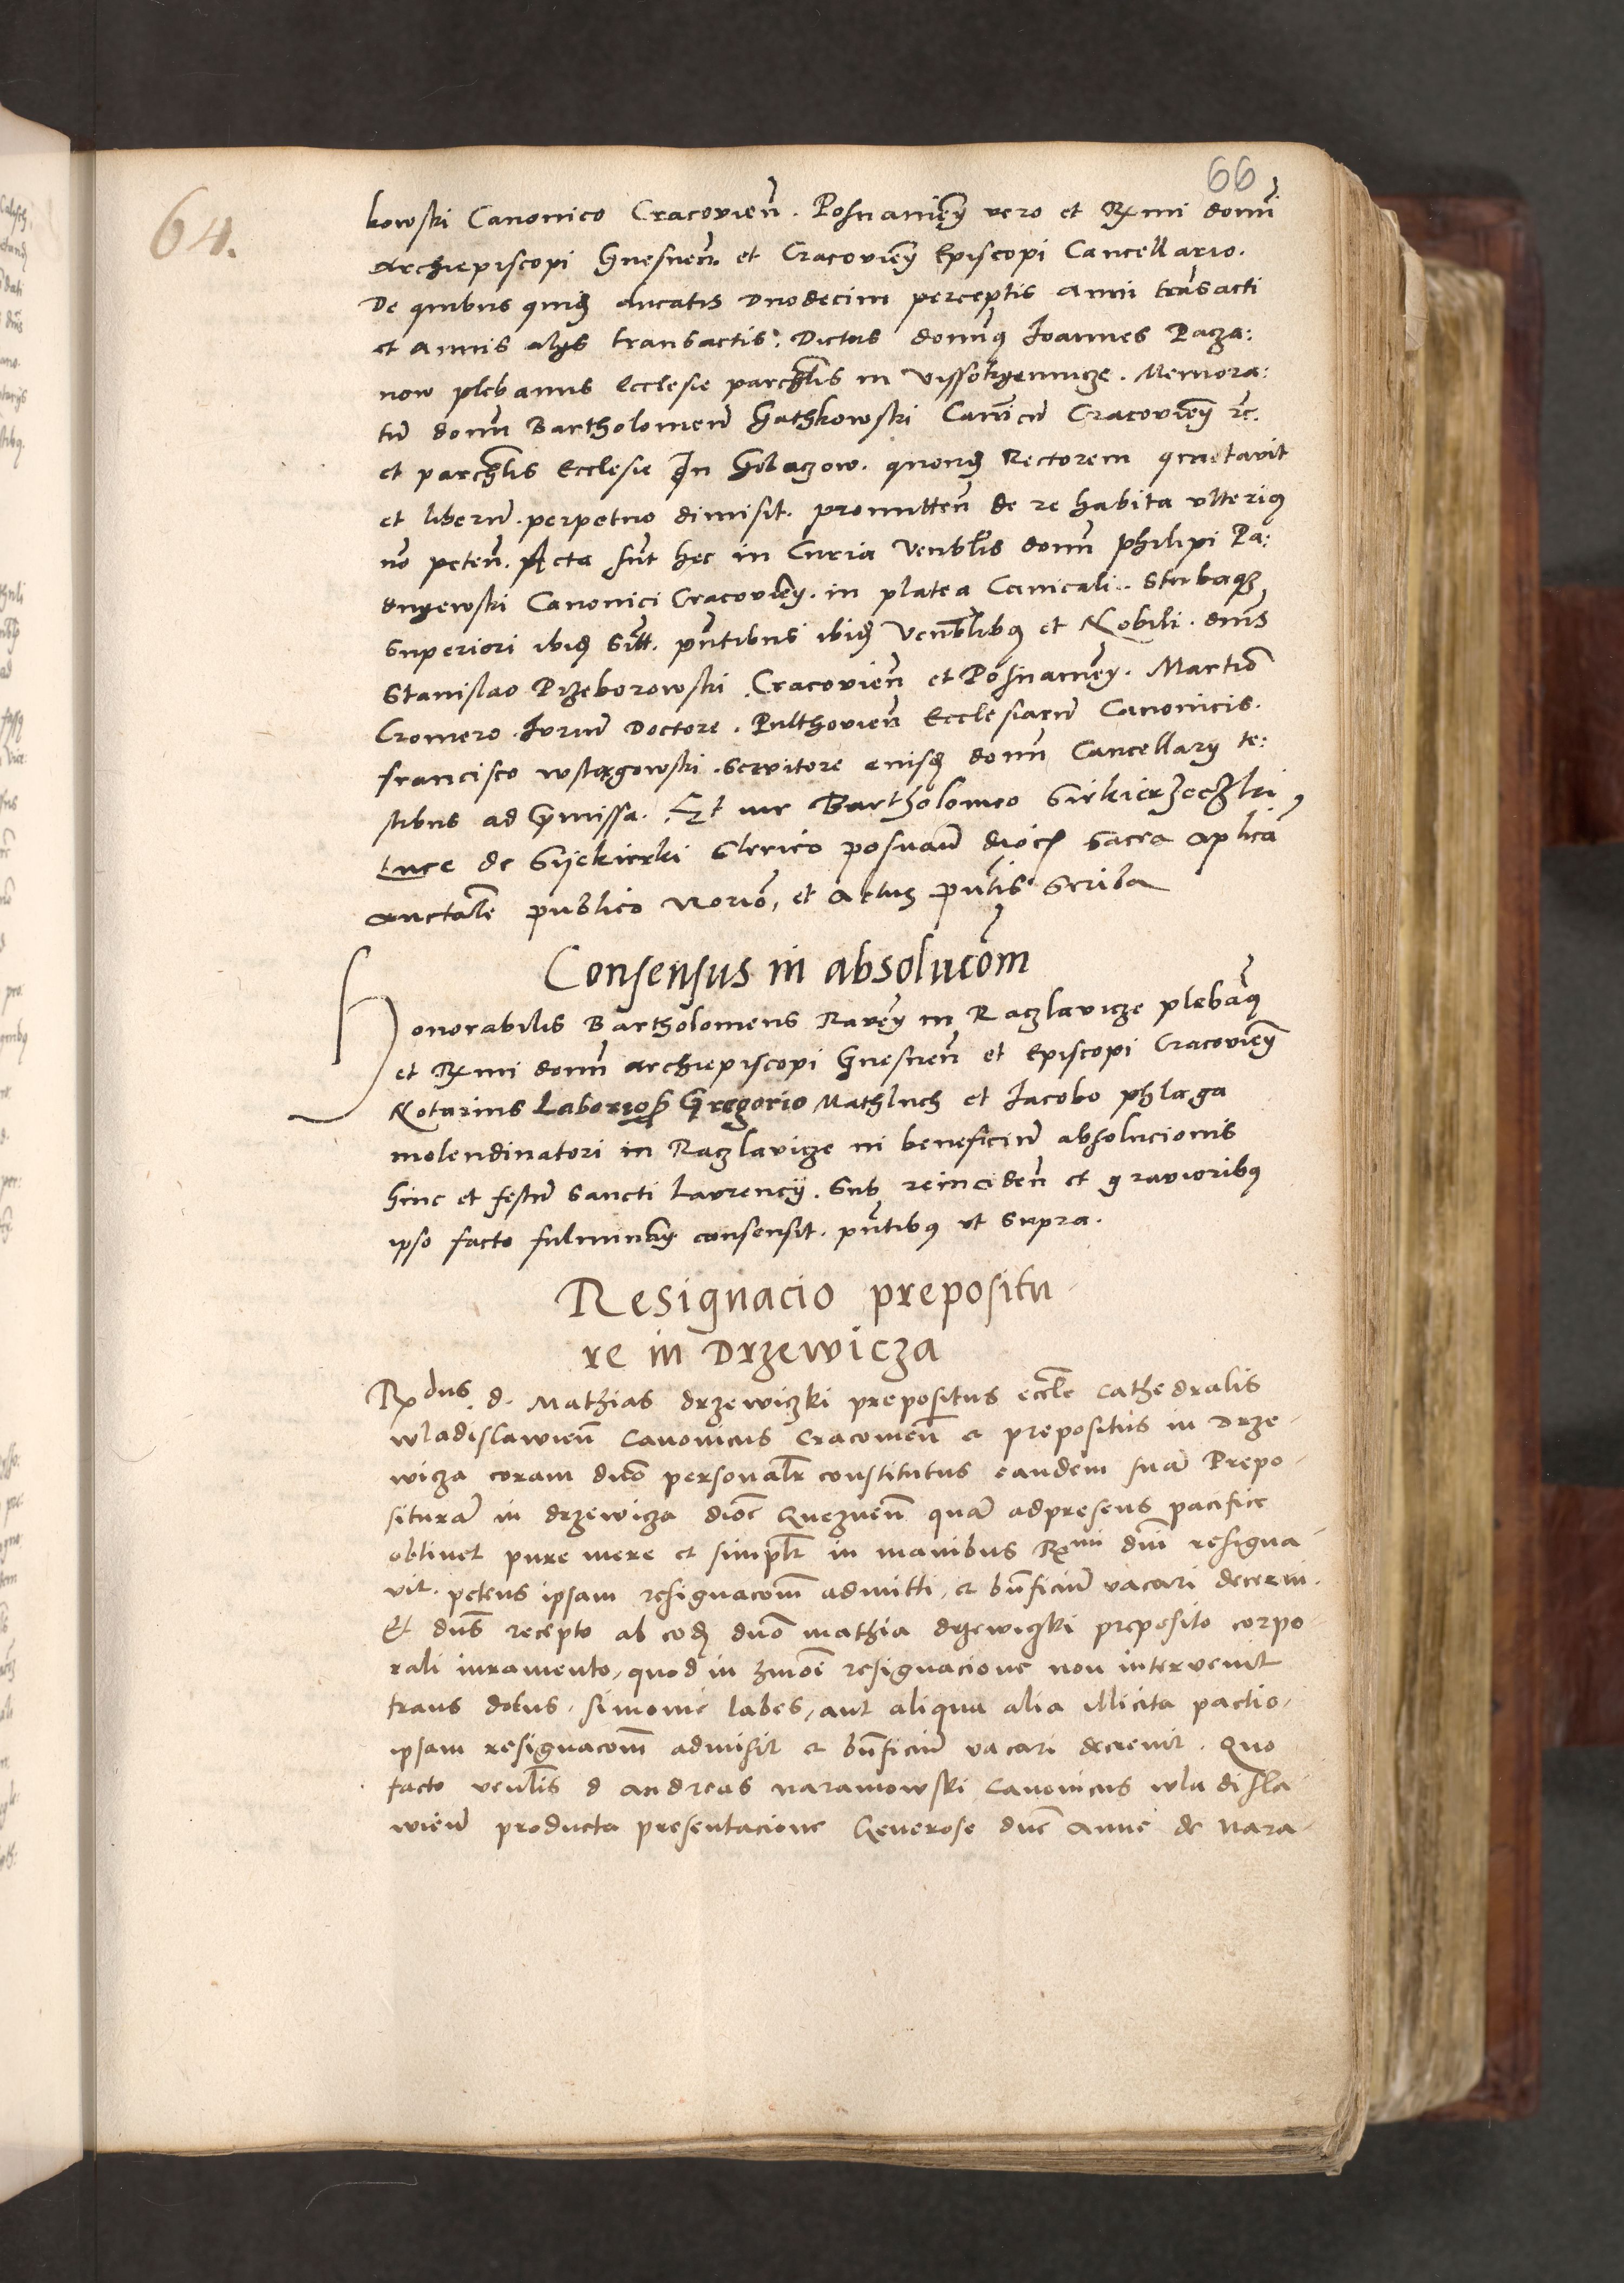 66
64.
kowski Canonico Cracovień. Posnanień vero et Rxmi domi
Archiepiscopi Gnesneñ. et Cracovień Episcopi Cancellario.
De quibus quidē ducatis duodecim perceptis anni trāsacti
et annis alijs transactis: Dictus domīq Joannes Pacza:
now plebanus Ecclesie parchlis in Memora:
tū domī Bartholomeū Gathkowski Canīcū Cracovień rc.
et parchlis Ecclesie In quondā Rectorem quietavit
et liberū. perpetuo dimisit. promitteñ de re habita ulteriq
nō peteñ. Acta sūt hec in Curia Venblis domī philipi Pa:
dnyewski Canonici Cracovień. in platea Canicali. Stubaq
superiori ibidē sitt. pūtibus ibidē Venblibq et Nobili. dnis
Stanislao Przeborowski Cracovień et Posnanień. Martīo
Cromero Iuriū Doctore. Pulthovień Ecclesiarū Canonicis.
francisco servitore eiusdē domī Cancellarij te:
stibus ad p̄missa. Et me Bartholomeo
Luce de Clerico posnań dioc Sacra aplica
auctate publico Norio, et actus pūtis Scriba
Consensus in absolucōm
Honorabilis Bartholomeus Raveń in Raczlavicze plebaq
et Rxmi domī archiepiscopi Gnesneñ et Episcopi Cracovień
Notarius Laborioß Gregorio Mathluch et Jacobo phlaga
molendinatori in Raczlavicze in beneficiū absolucionis
hinc et festū Sancti Laurencij. Sub reinciden et gravioribq
ipso facto consensit. pūtibq ut supra.
Resignacio prepositu
re in Drzewicza
Rxdus. d. Mathias drzewiczki prepositus eccle Cathedralis
wladislawień Canonicus Cracovień et prepositus in Drze-
wicza coram dño personalr constitutus eandem suā Prepo-
siturā in drzewicza dioc Gnezneñ quā adpresens pacifice
obtinet pure mere et simplr in manibus Rxmi dni resigna-
vit. petens ipsam resignacom admitti, et bnficiū vacari decerni.
Et dns recepto ab eodē dno mathia drzewiczki preposito corpo-
rali iuramento, quod in hmoi resignacione non intervenit
fraus dolus, simonie labes, aut aliqua alia illicita pactio,
ipsam resignacom admisit et bnficiū vacari decrevit. Quo
facto venlis d Andreas naramowski Canonicus wladisla-
wień producta presentacione Generose dne Anne de Nara-